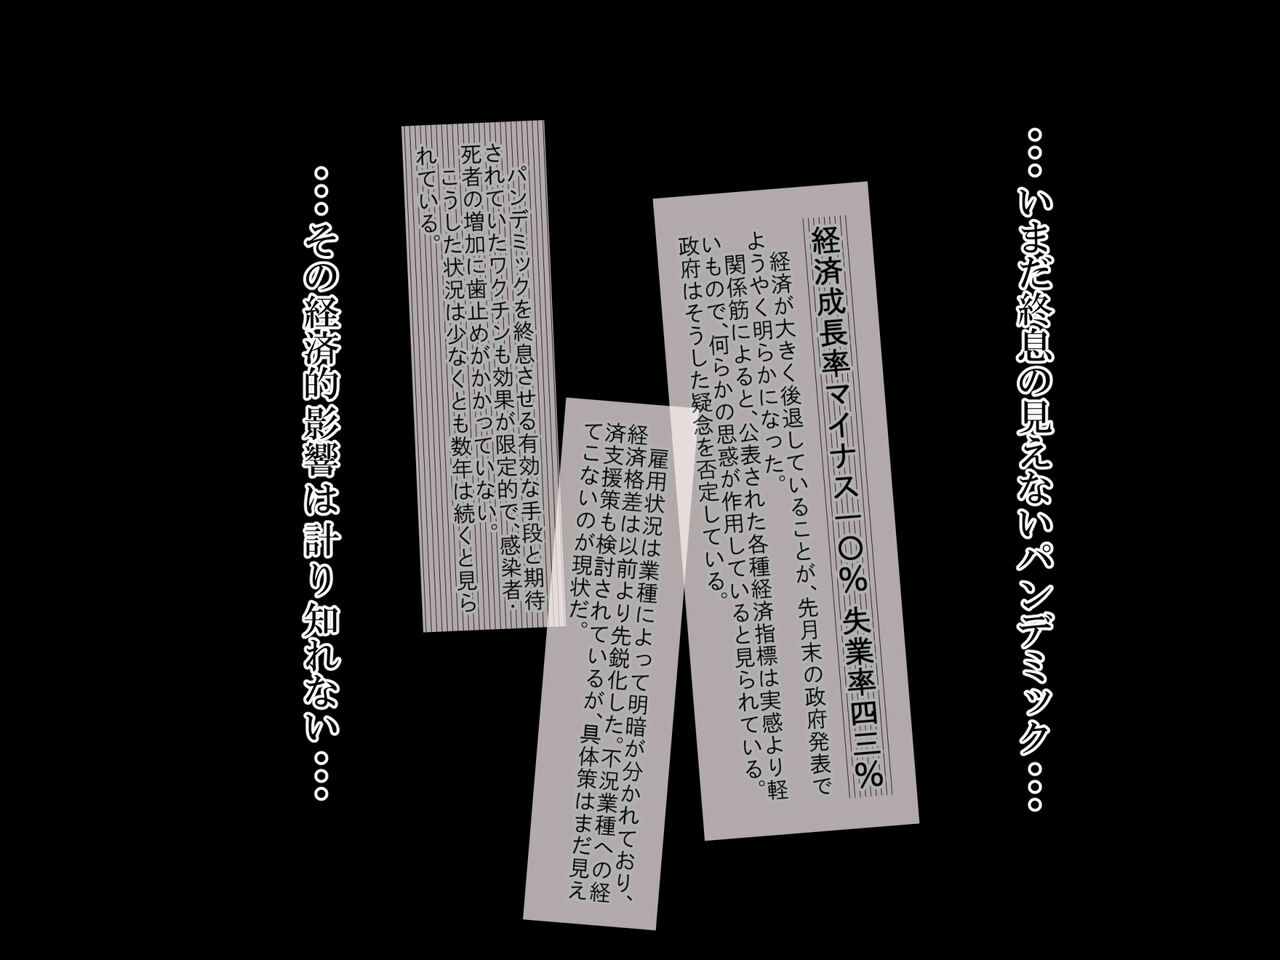 ……いまだ終息の見えないパンデミック……
経済成長率マイナス一〇％ 失業率四三％
経済が大きく後退していることが、先月末の政府発表で
ようやく明らかになった。
関係筋によると、公表された各種経済指標は実感より軽
いもので、何らかの思惑が作用していると見られている。
政府はそうした疑念を否定している。
雇用状況は業種によって明暗が分かれており、
経済格差は以前より先鋭化した。不況業種への経
済支援策も検討されているが、具体策はまだ見え
てこないのが現状だ。
パンデミックを終息させる有効な手段と期待
されていたワクチンも効果が限定的で、感染者・
死者の増加に歯止めがかかっていない。
こうした状況は少なくとも数年は続くと見ら
れている。
……その経済的影響は計り知れない……